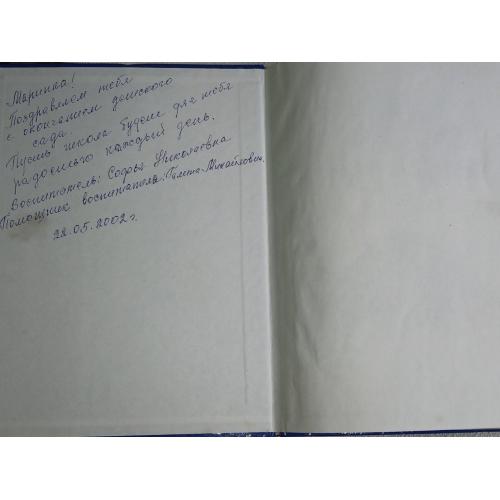 Маринка!
Поздравляем тебя
с окончанием детского
сада.
Пусть школа будет для тебя
радостью каждый день.
Воспитатель: Софья Николаевна
Помощник воспитателя: Михайловна.
22.05.2002 г.